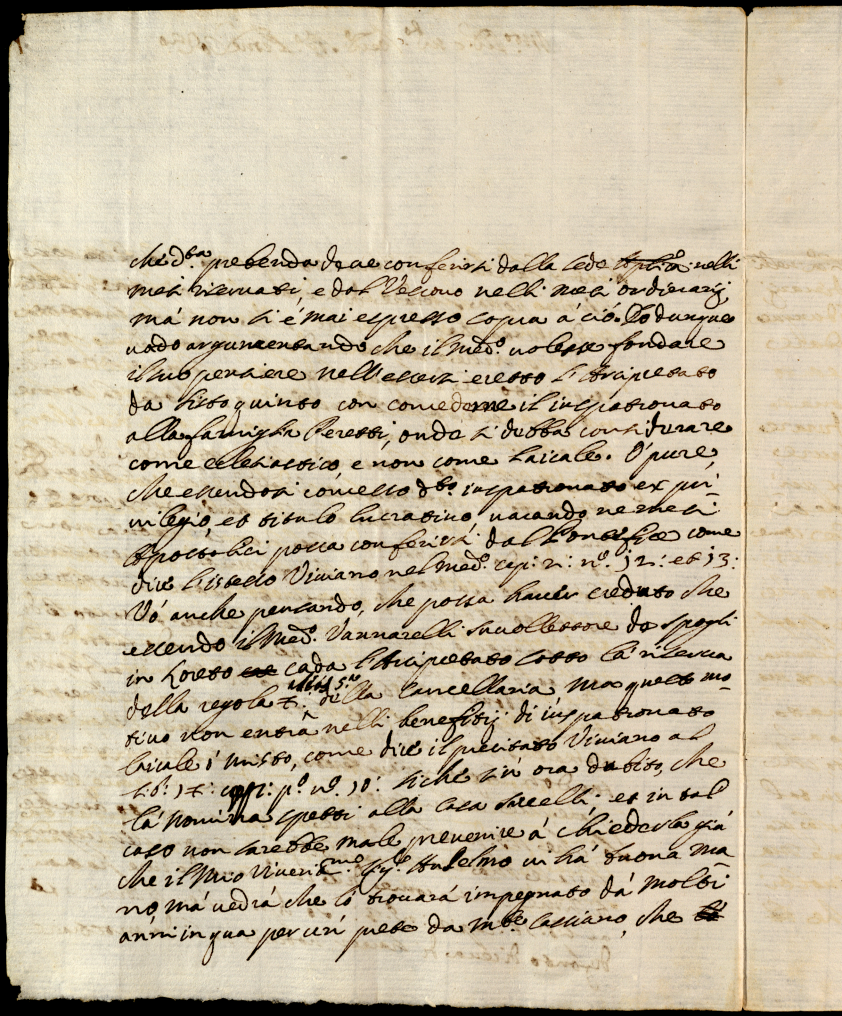 che d.ta prebenda deve conferirsi dalla sede Aplica nelli
mesi riservati, e dal Vescovo nelli mesi ordinarij,
mà non si è mai espresso copia à ciò. Io dunque
vado argumentando che il med.o volesse fondare
il suo pensiere nell'essersi eretto l'Arcipretato
da Sisto quinto con concederne il iuspatronato
alla famiglia Peretti, onde si debba considerare
come eclesiastico e non come laicale. O pure,
che essendosi concesso d.to iuspatronato ex pri-
vilegio, et titulo lucrativo, vacando ne mesi
Apostolici possa conferirsi dal Pontefice come
dice l'istesso Viviano nel med.o cap: 2: n.o 12: et 13:
Vò anche pensando, che possa haver creduto che
essendo il Med.o Vannarelli succollettore de spogli
in Loreto cada l'Arcipretato sotto la riserva
della regola della Cancellaria ma questo mo-
tivo non entra nelli benefitij di iuspatronato
laicale ò misto, come dice il precitato Viviano al
lib: p.o n.o 10: sichè sin ora dubito, che
la nomina spetti alla casa Savelli, et in tal
caso non sarebbe male prevenire à chiederla già
che il mio Riverit.mo Sig.e Anselmo vi hà buona ma
no, mà vedrà che lo trovarà impegnato dà molti
anni in qua per un prete da Cassiano, che